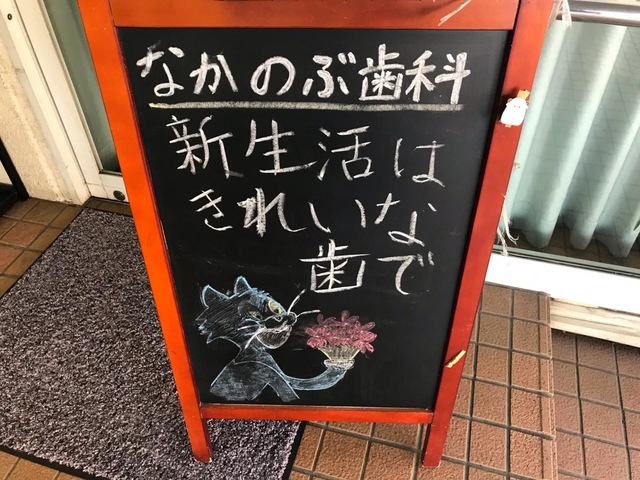 なかのぶ歯科
新生活は
きれいな
歯で